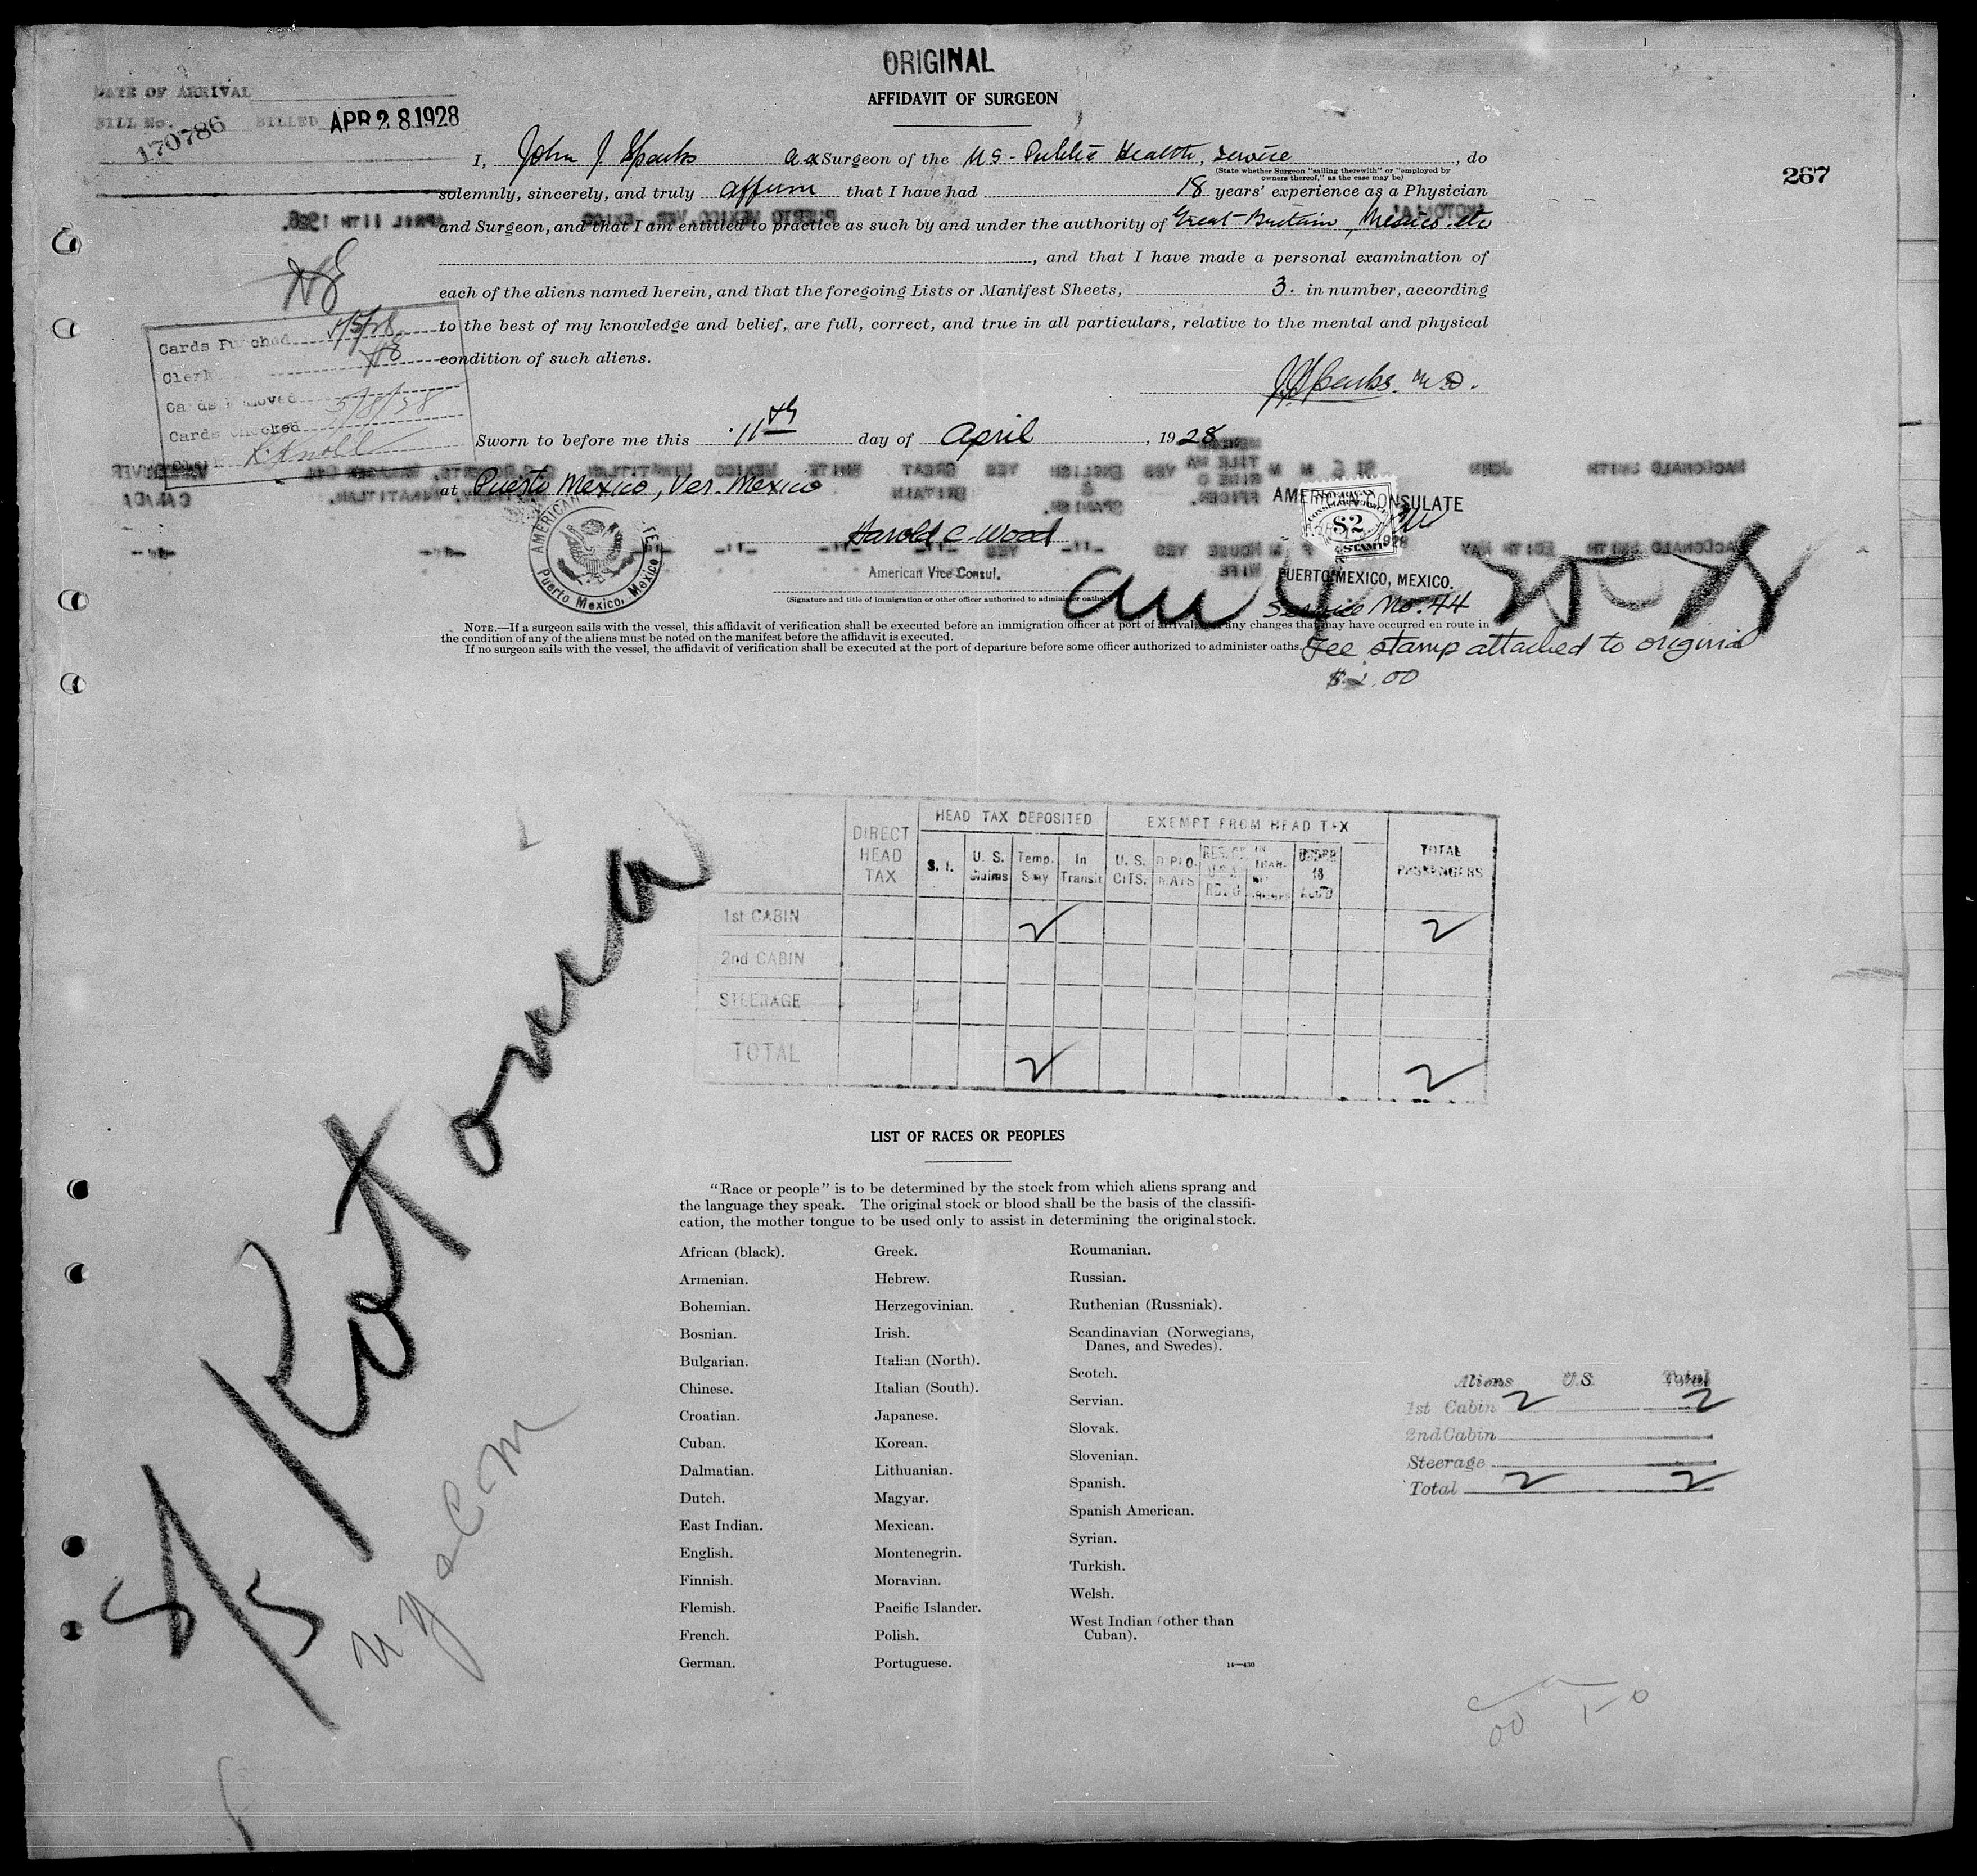 ORIGINAL
AFFIDAVIT OF SURGEON
DATE OF ARRIVAL
BILL No. BILLED APR 28 1928
170786
267
I, John J Sparks a Surgeon of the U S - Public Health, service, do
(State whether Surgeon "sailing therewith" or "employed by
owners thereof," as the case may be)
solemnly, sincerely, and truly affirm that I have had 18 years' experience as a Physician
and Surgeon, and that I am entitled to practice as such by and under the authority of Great-Britain, Mexico. etc
, and that I have made a personal examination of
each of the aliens named herein, and that the foregoing Lists or Manifest Sheets, 3. in number, according
to the best of my knowledge and belief, are full, correct, and true in all particulars, relative to the mental and physical
condition of such aliens.
J J Sparks. M.D.
Cards Punched 5/5/28
Clerk
Cards Removed 5/8/28
Cards Checked
Clerk K. Knoll
Sworn to before me this 11th day of April, 1928
at Puerto Mexico, Ver. Mexico
AMERICAN CONSULATE
$2
Harold C. Wood
American Vice Consul.
PUERTO MEXICO, MEXICO.
Puerto Mexico, Mexico
(Signature and title of immigration or other officer authorized to administer oaths)
Service No. 44
NOTE.—If a surgeon sails with the vessel, this affidavit of verification shall be executed before an immigration officer at port of arrival, and any changes that may have occurred en route in
the condition of any of the aliens must be noted on the manifest before the affidavit is executed.
If no surgeon sails with the vessel, the affidavit of verification shall be executed at the port of departure before some officer authorized to administer oaths.
Fee stamp attached to original
$2.00
arr 4-25-28
DIRECT HEAD TAX HEAD TAX DEPOSITED EXEMPT FROM HEAD TAX TOTAL PASSENGERS
S. I. U. S. Claims Temp. Stay In Transit U. S. CITS. DIPLO- MATS UNDER 16
1st CABIN 2 2
2nd CABIN
STEERAGE
TOTAL 2 2
S/S Katomia
LIST OF RACES OR PEOPLES
"Race or people" is to be determined by the stock from which aliens sprang and
the language they speak. The original stock or blood shall be the basis of the classifi-
cation, the mother tongue to be used only to assist in determining the original stock.
African (black). Greek. Roumanian.
Armenian. Hebrew. Russian.
Bohemian. Herzegovinian. Ruthenian (Russniak).
Bosnian. Irish. Scandinavian (Norwegians,
Danes, and Swedes).
Bulgarian. Italian (North). Scotch.
Chinese. Italian (South). Servian.
Croatian. Japanese. Slovak.
Cuban. Korean. Slovenian.
Dalmatian. Lithuanian. Spanish.
Dutch. Magyar. Spanish American.
East Indian. Mexican. Syrian.
English. Montenegrin. Turkish.
Finnish. Moravian. Welsh.
Flemish. Pacific Islander. West Indian (other than
Cuban).
French. Polish.
German. Portuguese.
14—430
Aliens U.S. Total
1st Cabin 2 2
2nd Cabin
Steerage
Total 2 2